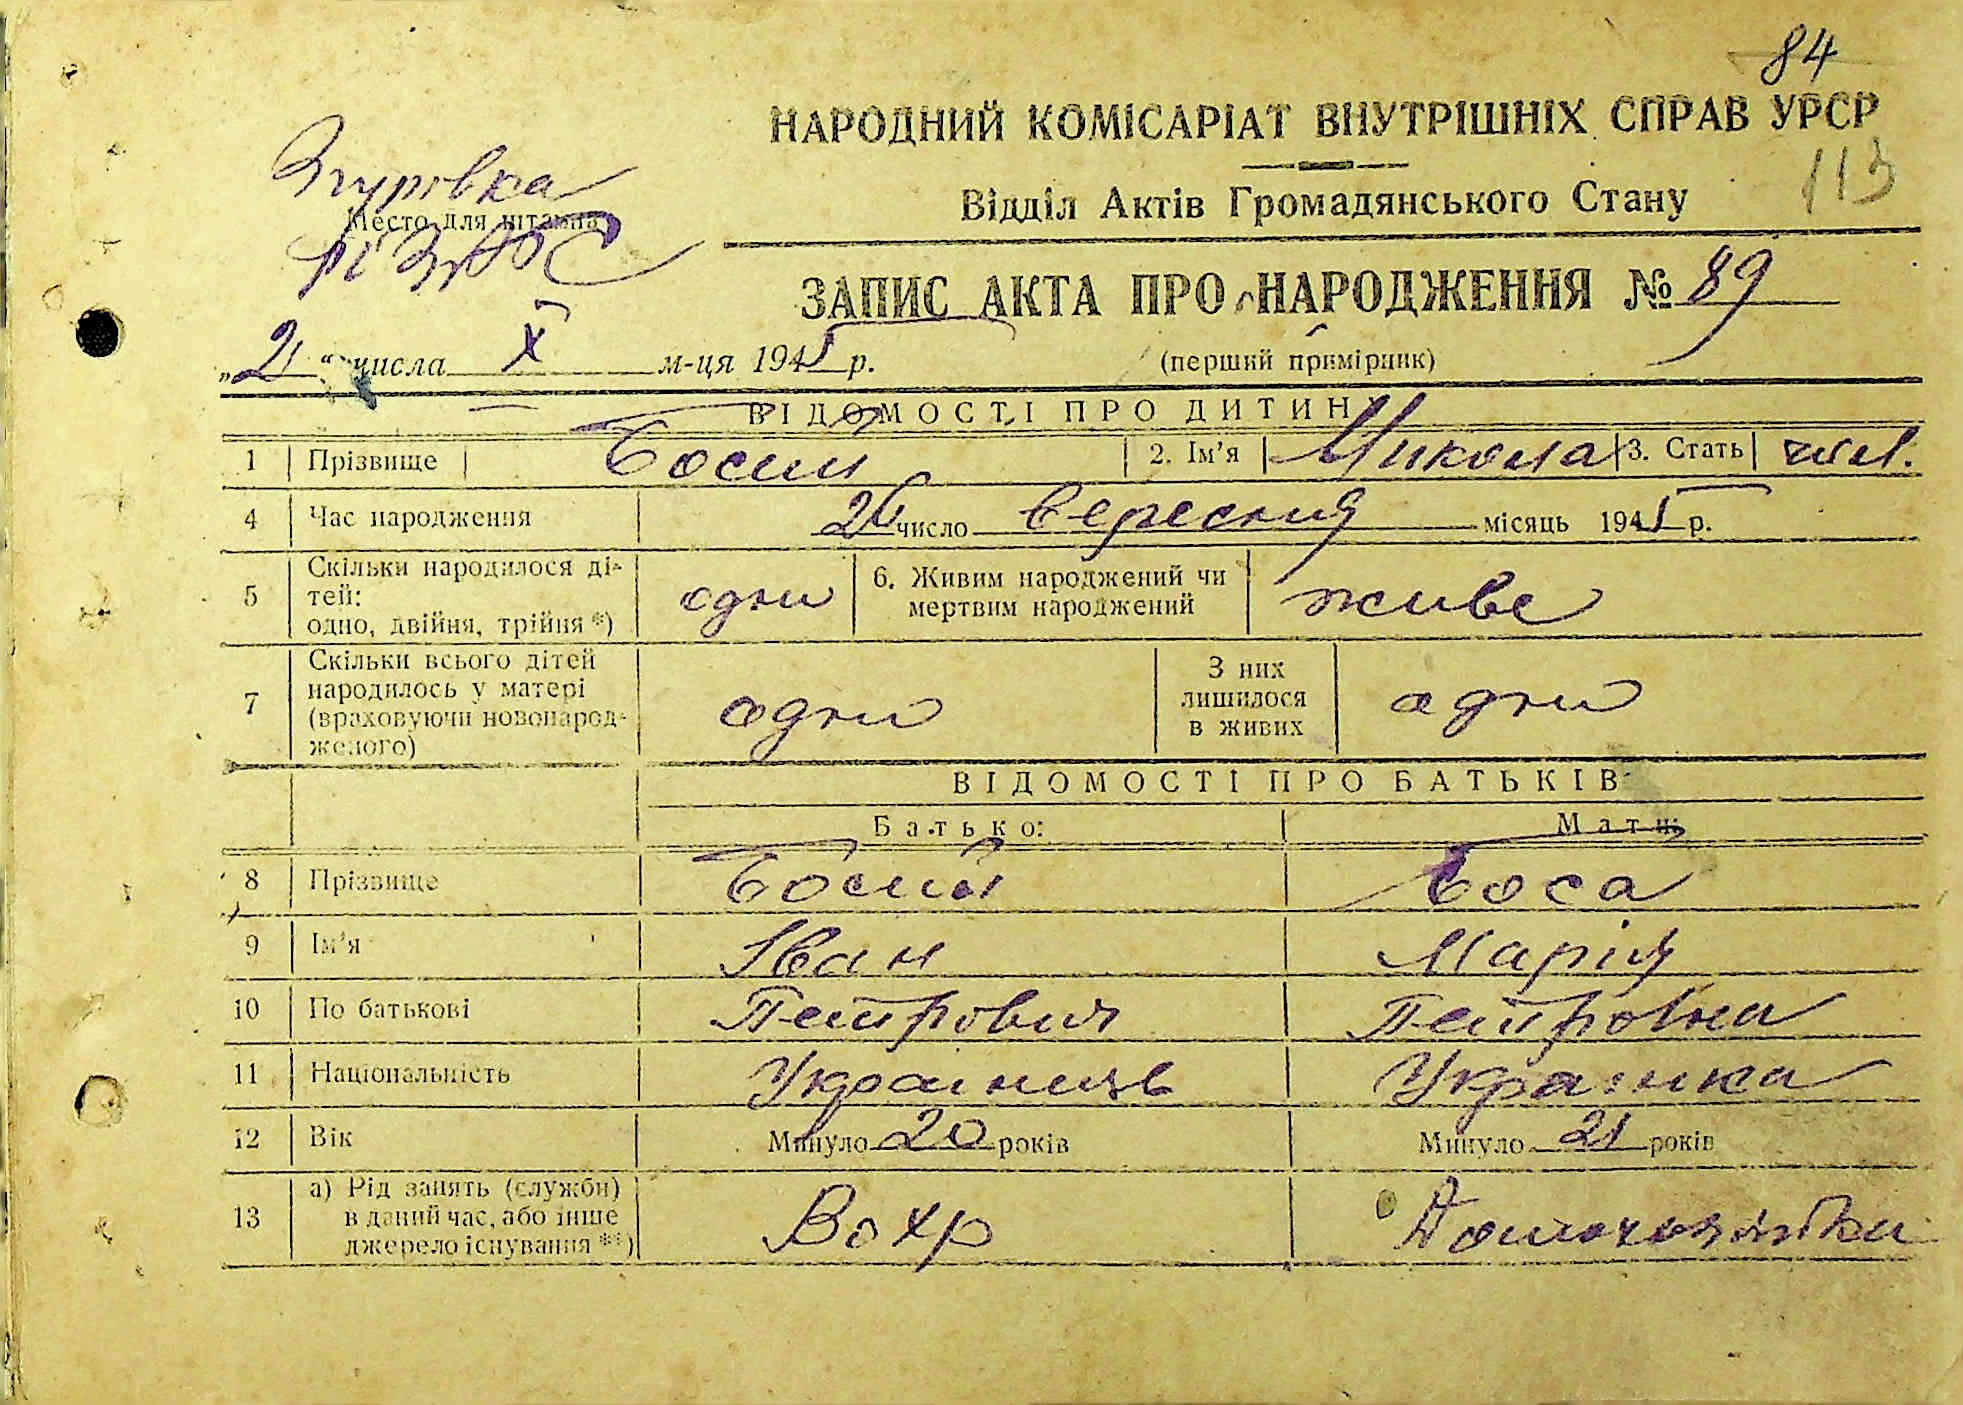 84
НАРОДНИЙ КОМІСАРІАТ ВНУТРІШНІХ СПРАВ УРСР
113
Згурівка
Место для штампа
Відділ Актів Громадянського Стану
ЗАПИС АКТА ПРО НАРОДЖЕННЯ № 89
"21" числа X м-ця 1945 р.
(перший примірник)
ВІДОМОСТІ ПРО ДИТИНУ
1 Прізвище Босий 2. Ім'я Микола 3. Стать чол.
4 Час народження 26 число вересния місяць 1945 р.
5 Скільки народилося ді-
тей:
одно, двійня, трійня *) одни 6. Живим народжений чи
мертвим народжений живе
7 Скільки всього дітей
народилось у матері
(враховуючи новонарод-
женого) одни З них
лишилося
в живих одни
ВІДОМОСТІ ПРО БАТЬКІВ
Батько: Мати:
8 Прізвище Босий Боса
9 Ім'я Іван Марія
10 По батькові Петрович Петровна
11 Національність Українець Українка
12 Вік Минуло 20 років Минуло 21 років
13 а) Рід занять (служби)
в даний час, або інше
джерело існування **) Вохр Домохозяйка